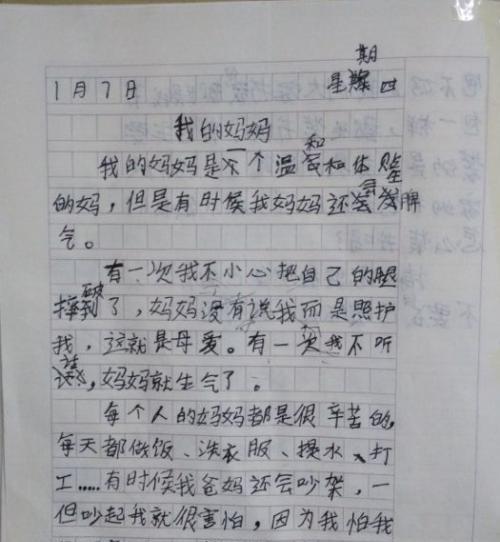 1月7日 星期四
我的妈妈
我的妈妈是一个温和体贴
的妈,但是有时候我妈妈还会发脾
气。
有一次我不小心把自己的腿
摔破了,妈妈没有说我而是照护
我,这就是母爱。有一次我不听
话,妈妈就生气了。
每个人的妈妈都是很辛苦的,
每天都做饭、洗衣服、提水、打
工……有时候我爸妈还会吵架,一
但吵起我就很害怕,因为我怕我